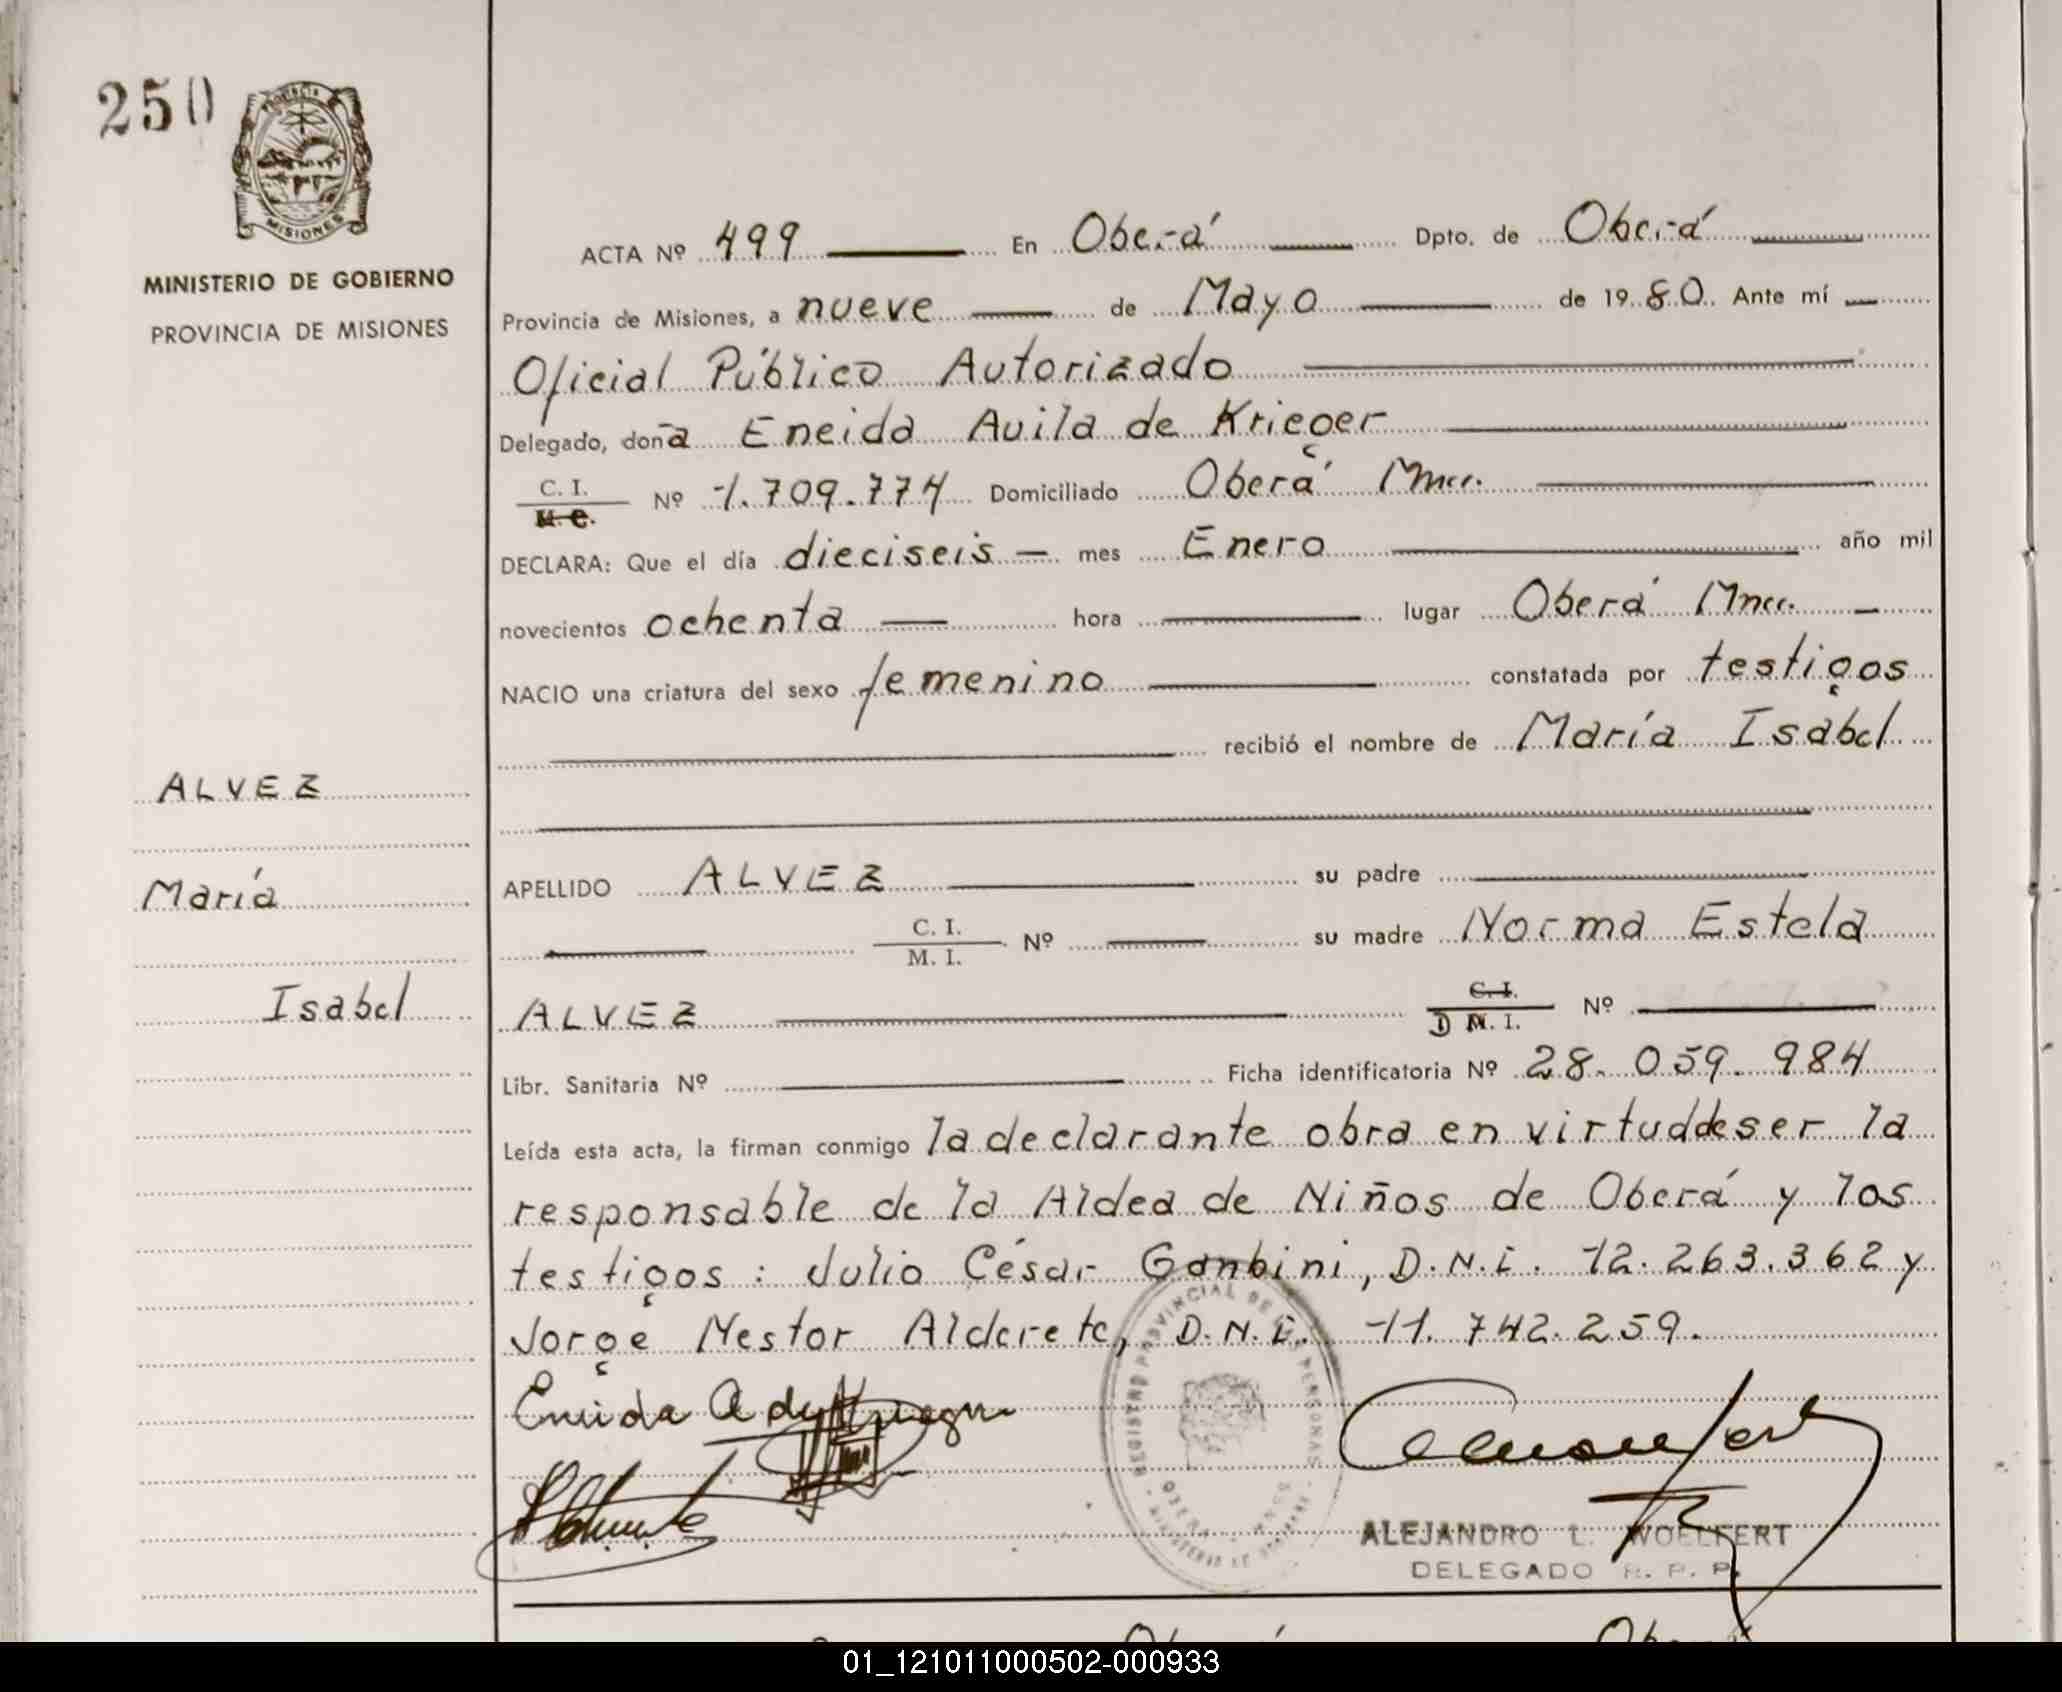 250
PROVINCIA
MISIONES
MINISTERIO DE GOBIERNO
PROVINCIA DE MISIONES
ACTA Nº 499 En Oberá Dpto. de Oberá
Provincia de Misiones, a nueve de Mayo de 1980. Ante mí
Oficial Público Autorizado
Delegado, doña Eneida Avila de Krieger
C. I. Nº 1.709.774 Domiciliado Oberá Mnes.
M. C.
DECLARA: Que el día dieciseis mes Enero año mil
novecientos ochenta hora lugar Oberá Mnes.
NACIO una criatura del sexo femenino constatada por testigos
recibió el nombre de María Isabel
ALVEZ
María
Isabel
APELLIDO ALVEZ su padre
C. I.
M. I. Nº su madre Norma Estela
ALVEZ C. I. Nº
D M. I.
Libr. Sanitaria Nº Ficha identificatoria Nº 28.059.984
Leída esta acta, la firman conmigo la declarante obra en virtud de ser la
responsable de la Aldea de Niños de Oberá y los
testigos: Julio César Gambini, D.N.I. 12.263.362 y
Jorge Nestor Alderete, D.N.I. 11.742.259.
REGISTRO PROVINCIAL DE LAS PERSONAS
ALEJANDRO L. WOELFERT
DELEGADO R. P. P.
01_121011000502-000933